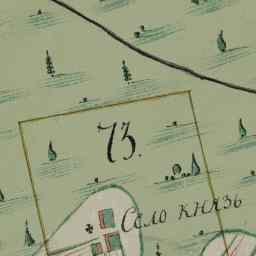 73.
Село князь